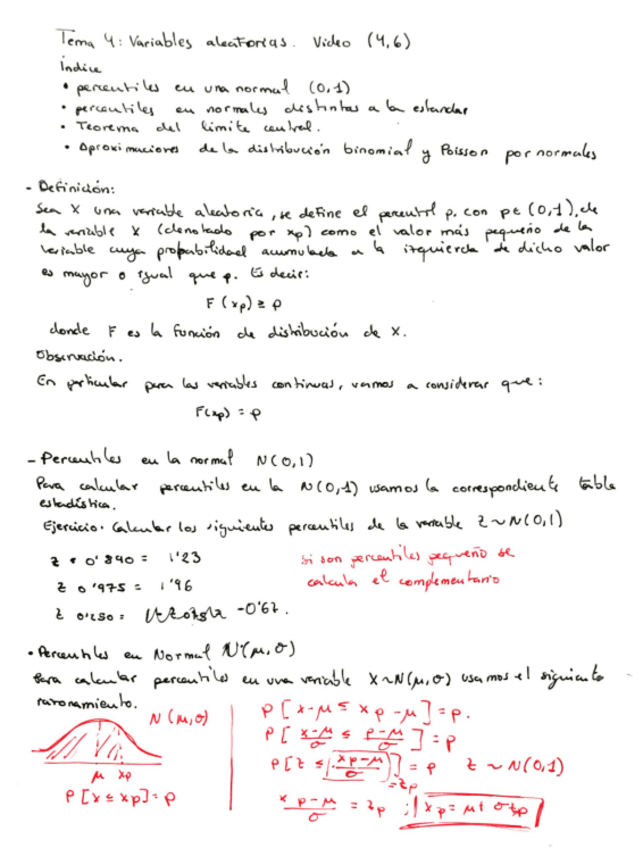 Tema 4: Variables aleatorias. Video (4,6)
Índice
• percentiles en una normal (0,1)
• percentiles en normales distintas a la estandar
• Teorema del limite central.
• Aproximaciones de la distribución binomial y Poisson por normales
- Definición:
Sea X una variable aleatoria, se define el percentil p, con p∈(0,1), de
la variable X (denotado por xp) como el valor más pequeño de la
variable cuya probabilidad acumulada a la izquierda de dicho valor
es mayor o igual que p. Es decir:
F(xp) ≥ p
donde F es la función de distribución de X.
Observación.
En particular para las variables continuas, vamos a considerar que:
F(xp) = p
- Percentiles en la normal N(0,1)
Para calcular percentiles en la N(0,1) usamos la correspondiente tabla
estadística.
Ejercicio. Calcular los siguientes percentiles de la variable Z∼N(0,1)
z 0'890 = 1'23
z 0'975 = 1'96
z 0'250 = -0'67.
si son percentiles pequeño se
calcula el complementario
• Percentiles en Normal N(μ,σ)
Para calcular percentiles en una variable X∼N(μ,σ) usamos el siguiente
razonamiento.
N(μ,σ)
μ xp
P[X ≤ xp] = p
P[x-μ ≤ xp-μ] = p.
P[x-μ/σ ≤ p-μ/σ] = p
P[Z ≤ xp-μ/σ] = p Z ∼ N(0,1)
= zp
xp-μ/σ = zp ; xp = μ + σzp